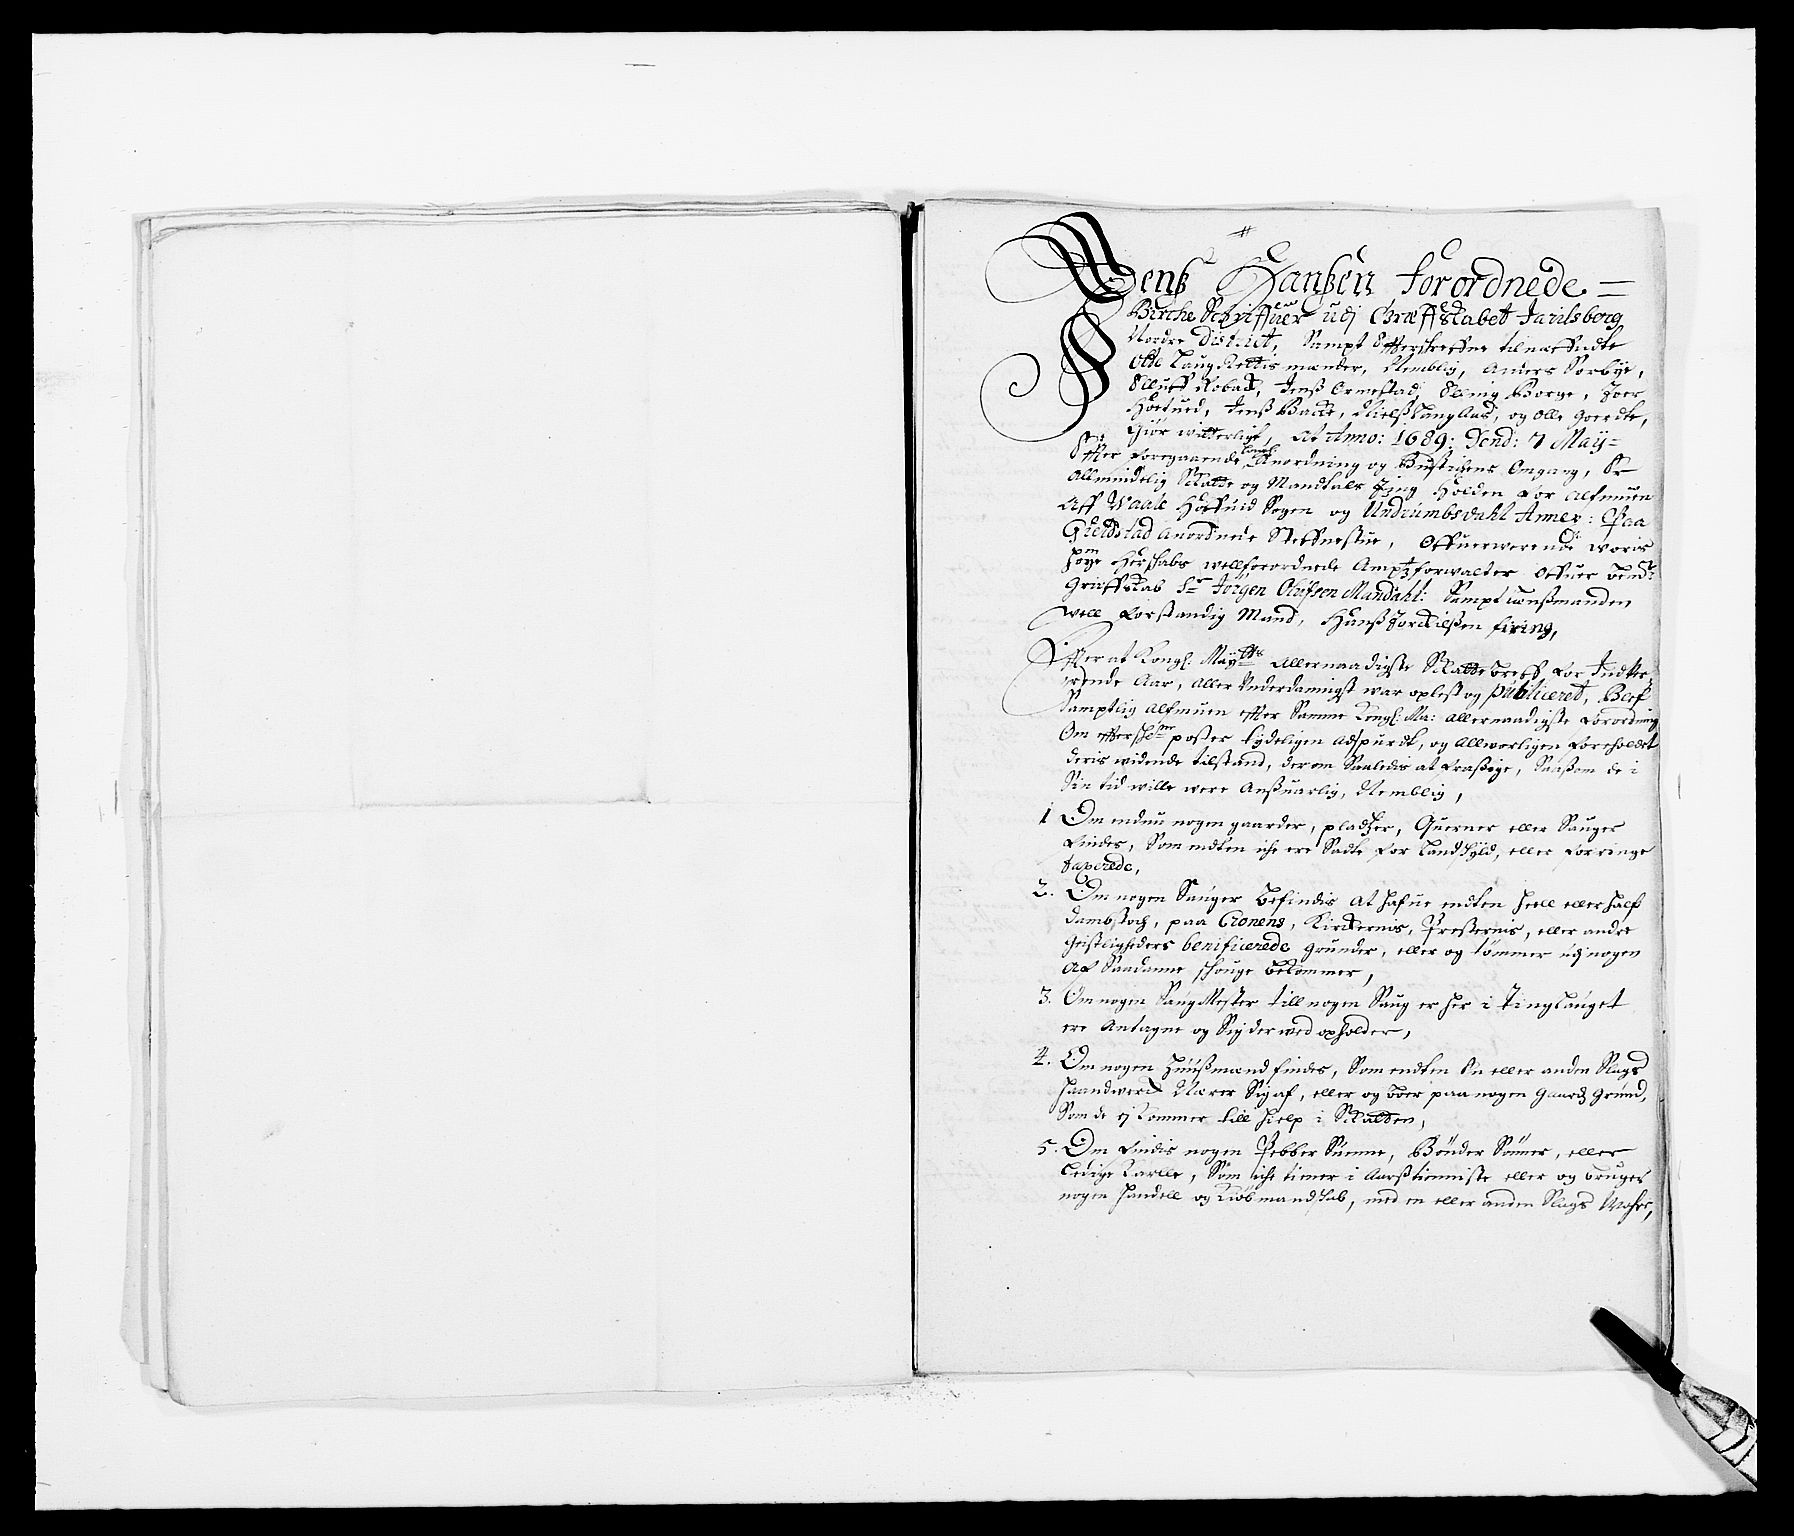 Jens Hanßen Forordnede =
Birche Schriffuer udj Græffskabet Jarilsborg
Nordre District, Sampt Effterskrefne tilneffndte
Otte Laug Rettis mænder, Nemblig, Anders Sørbÿe,
Oluff Robach, Jenß Ormestad, Elling Borge, Iver
Høetued, Jenß Backe, Nielß Langaas, og Olle Goerdte,
Giør witterligt, At Anno: 1689: Dend: 7 Maÿ=
Effter Foregaaende Kongl: Anordning og Bustichens Omgang, Er
Allmindelig Skatte og Mandtals Ting holden for Allmuen
Aff Waale Hoffuid Sogen og Undrumbsdahl Annex: Paa
Gierdstad Anordnede Steffnestue, Offuerwerende Woris
høÿe Herskabs wellforordnede Amptzforwalter Offuer bemte
Greffskab Sr Jørgen Olufsen Mandahl: Sampt Lenßmanden
well Forstandig Mand, Hanß Torckilßen Firing,
Effter at Kongl: Maÿtts Allernaadigste Skatte Breff for Indeve-
rende Aar, Aller Underdanigst war oplest og publiceret, Blef
Samptlig Allmuen effter Samme Kongl: Ma: allernaadigste Forordning
Om effterschne poster tydeligen Adspurdt, og Allworligen Foreholdet
deris widende tilstand, derom Saaledis at fraßige, Saaßom de i
Sin tid wille were Anßuarlig, Nemblig,
1 Om endnu nogen gaarder, pladtzer, Querner eller Sauger
findes, Som endten iche ere Satte for Landskyld, eller forringe
taxerede,
2. Om nogen Sauger befindis At hafue endten heell eller half
dambstoch, paa Cronens, Kirckernis, Presternis, eller andre
Geistligheders benificerede grunder, eller og tømmer udj nogen
Af Saadanne schouge bekommer,
3. Om nogen Saug Mester till nogen Saug er her i Tinglauget
ere Antagne og Sig der wed opholder,
4. Om nogen Huußmænd findes, Som endten En eller anden Slags
Haandwerck Nærer Sig af, eller og boer paa nogen Gaards Grund,
Som de ej kommer till hielp i Skatten,
5. Om findis nogen Pebber Suenne, Bønder Sønner, eller
Ledige Karlle, Som iche tiener i Aarßtienniste eller og bruges
nogen handell og Kiøbmandskab, med en eller anden Slags Wahre,